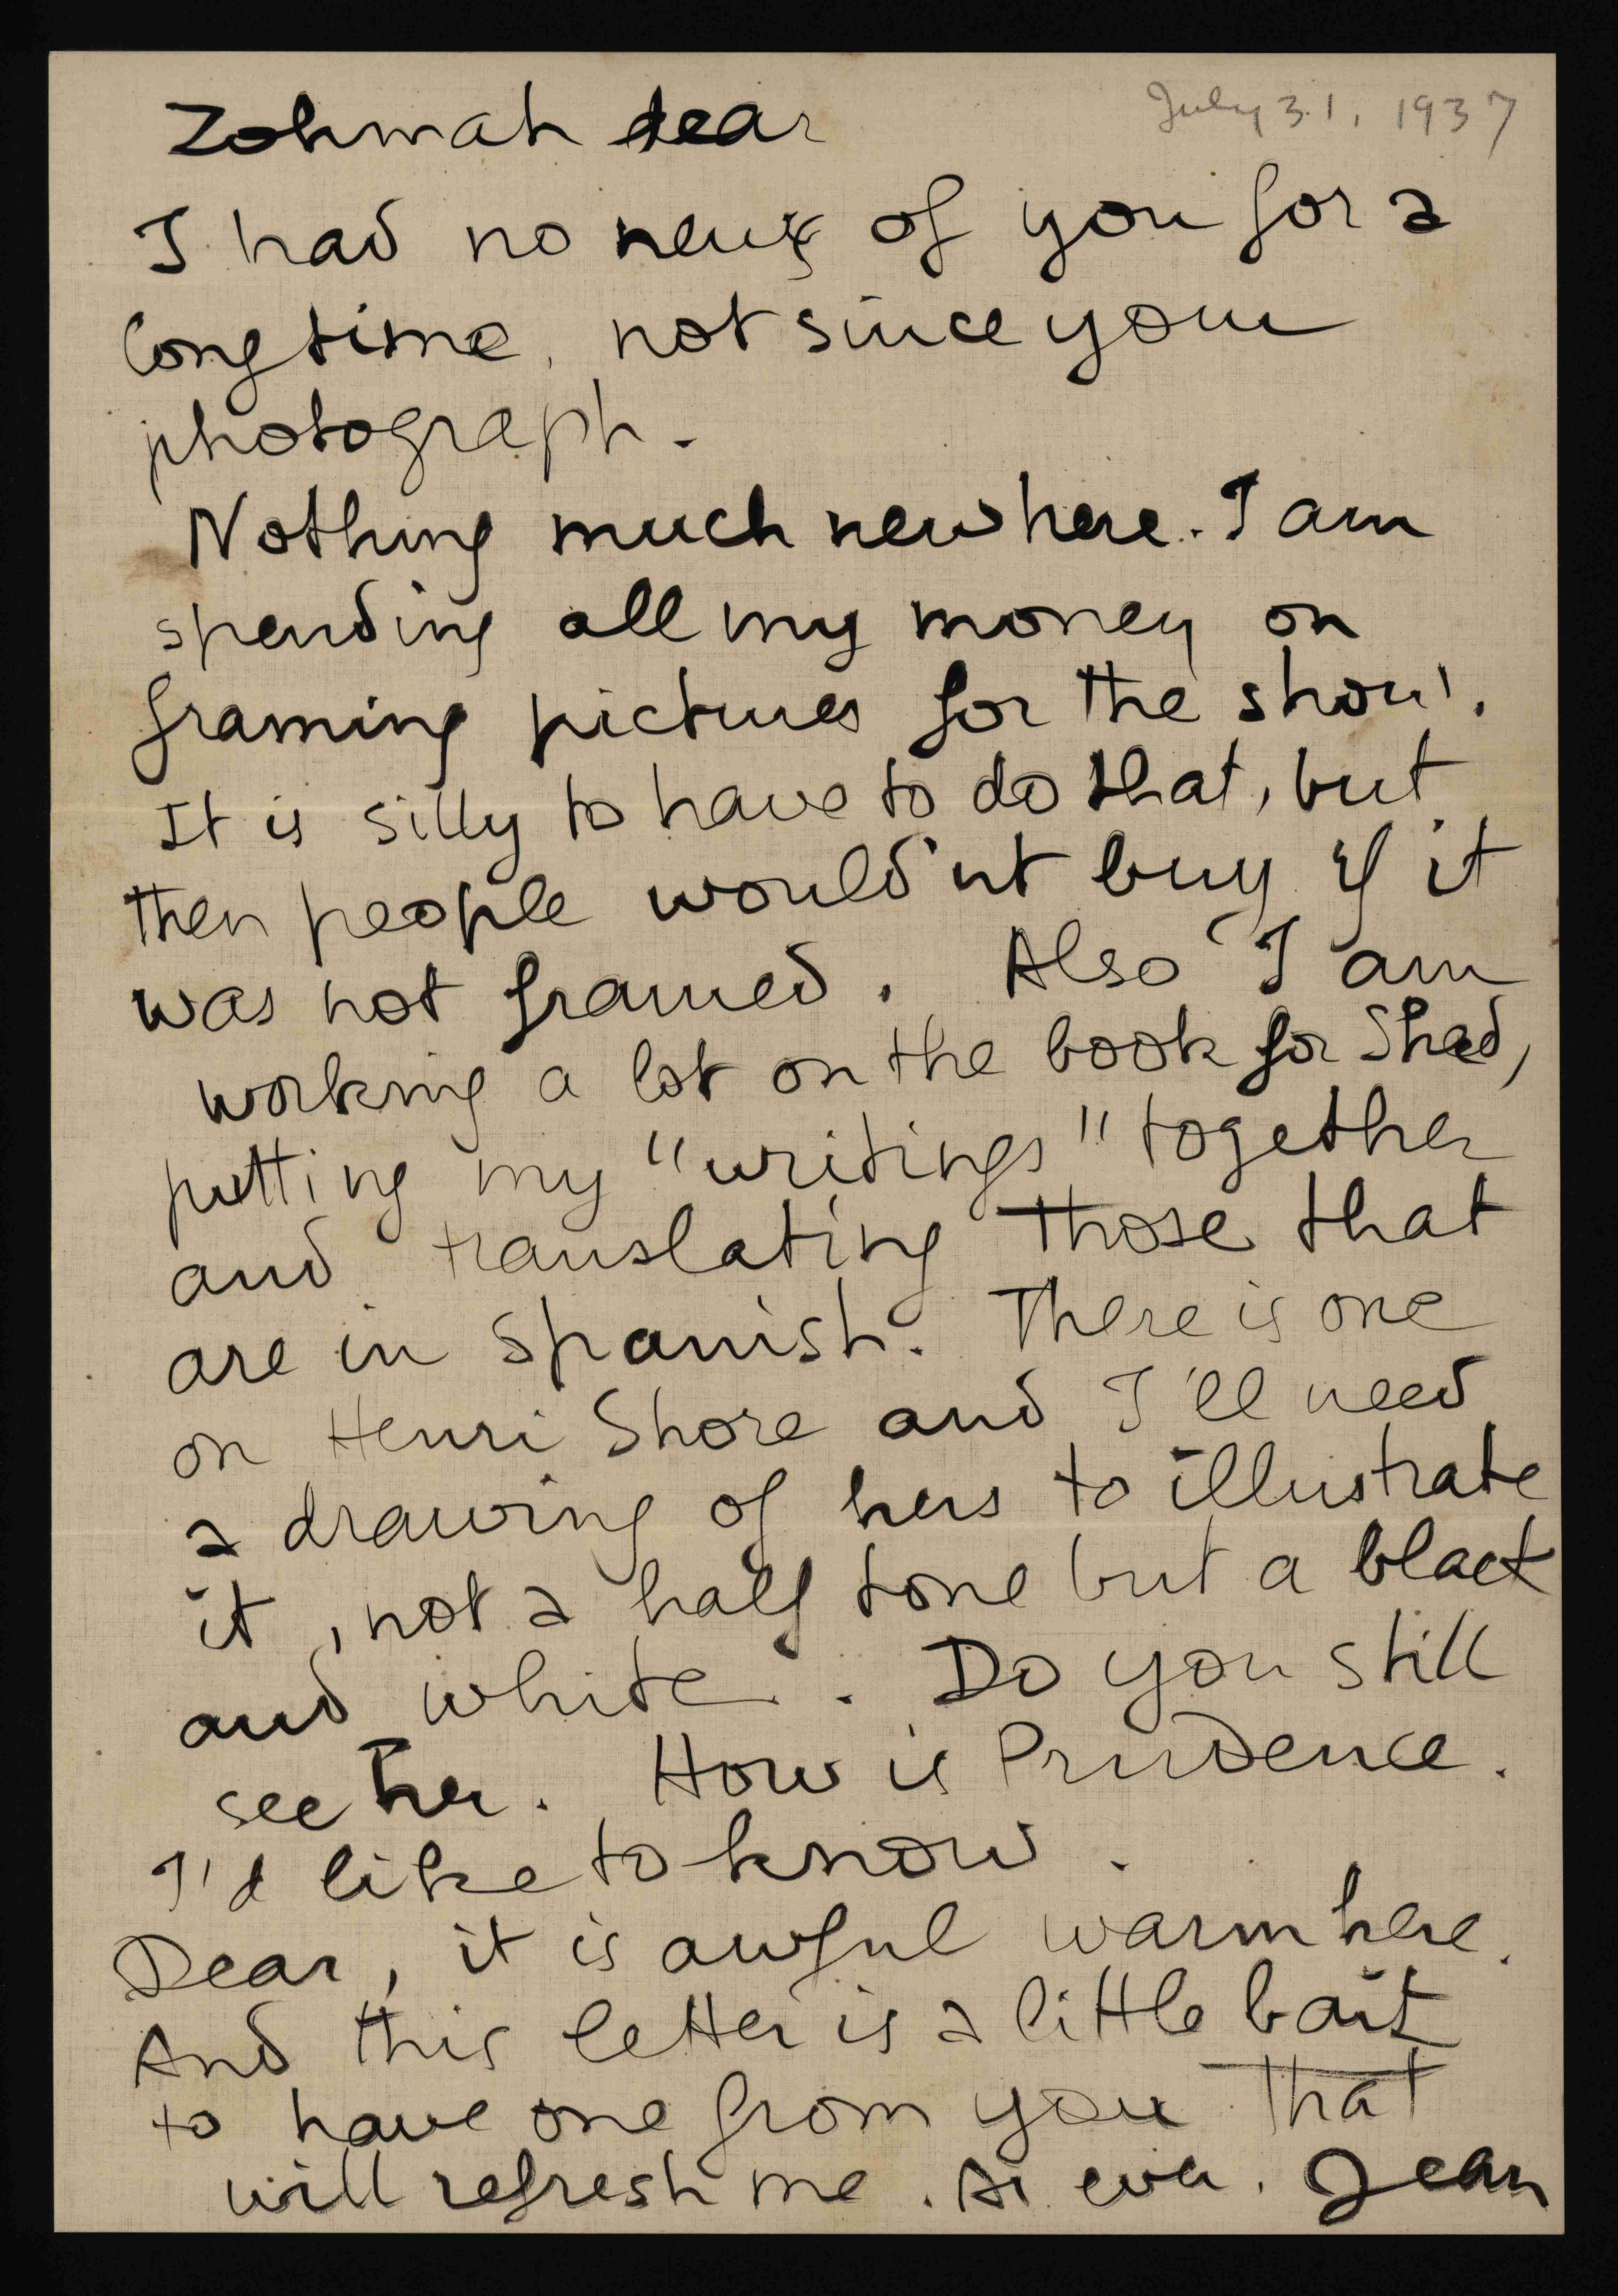 July 31, 1937
Zohmah dear
I had no news of you for a
long time, not since your
photograph.
Nothing much new here. I am
spending all my money on
framing pictures for the show.
It is silly to have to do that, but
then people would'nt buy if it
was not framed. Also I am
working a lot on the book for Shad,
putting my "writings" together
and translating those that
are in Spanish. There is one
on Henri Shore and I'll need
a drawing of hers to illustrate
it, not a half tone but a black
and white. Do you still
see her. How is Prudence.
I'd like to know.
Dear, it is awful warm here.
And this letter is a little bait
to have one from you that
will refresh me. As ever. Jean